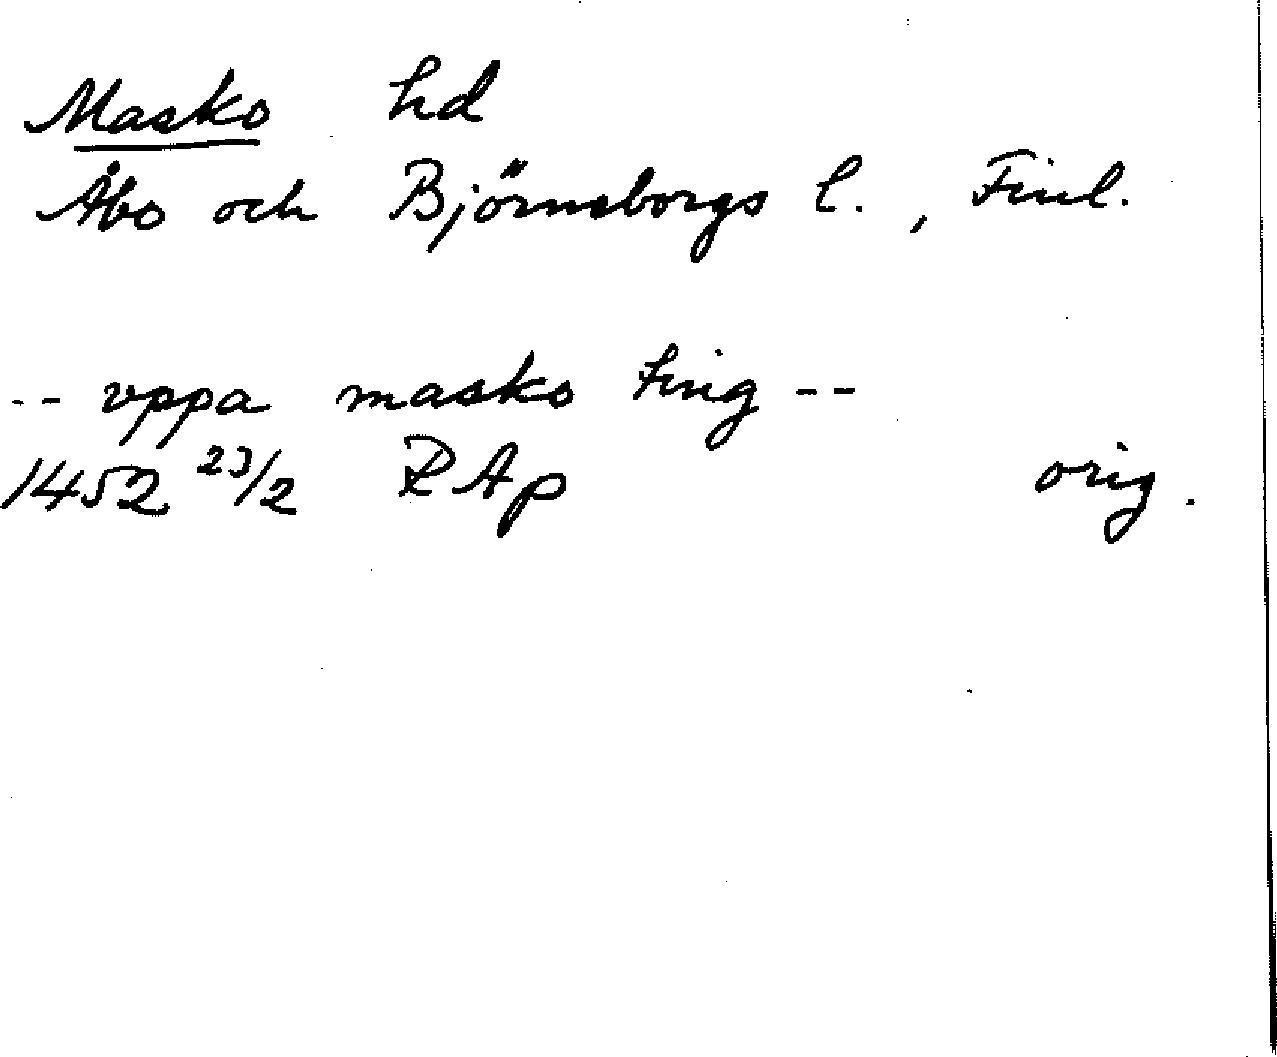 Masko hd
Åbo och Björneborgs l., Finl.
-- vppa masko ting --
1452 23/2 RAp orig.